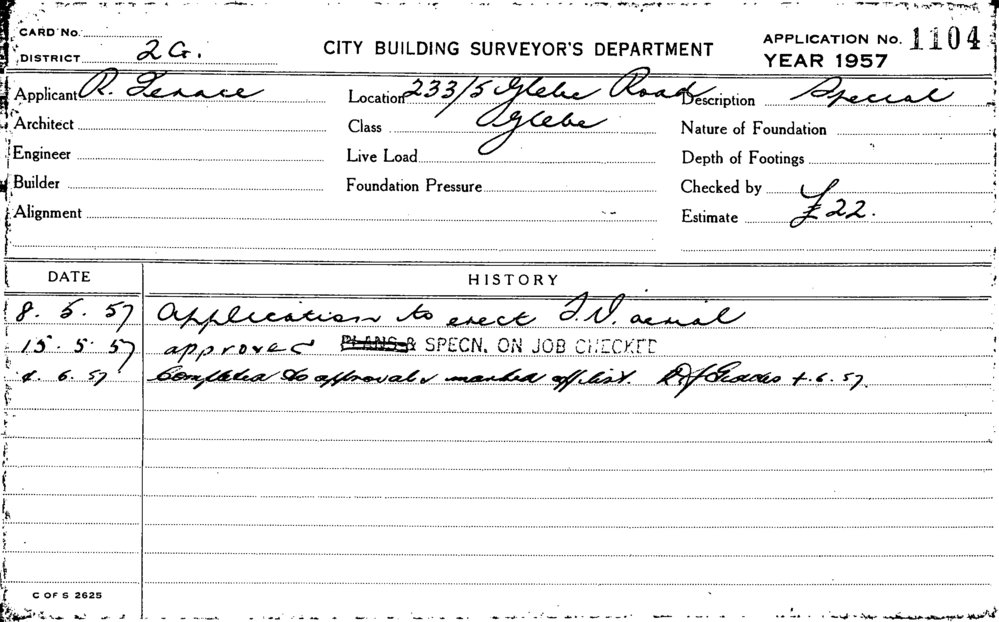 CARD No.
DISTRICT 2G.
CITY BUILDING SURVEYOR'S DEPARTMENT
APPLICATION No. 1104
YEAR 1957
Applicant R. Terrace Location 233/5 Glebe Road Description Special
Architect Class Glebe Nature of Foundation
Engineer Live Load Depth of Footings
Builder Foundation Pressure Checked by
Alignment Estimate £22.
DATE HISTORY
8. 5. 57 Application to erect T.V. aerial
15. 5. 57 approved PLANS & SPECN. ON JOB CHECKED
4. 6. 57 Completed to approval & marked off list. 4.6.57
C OF S 2625